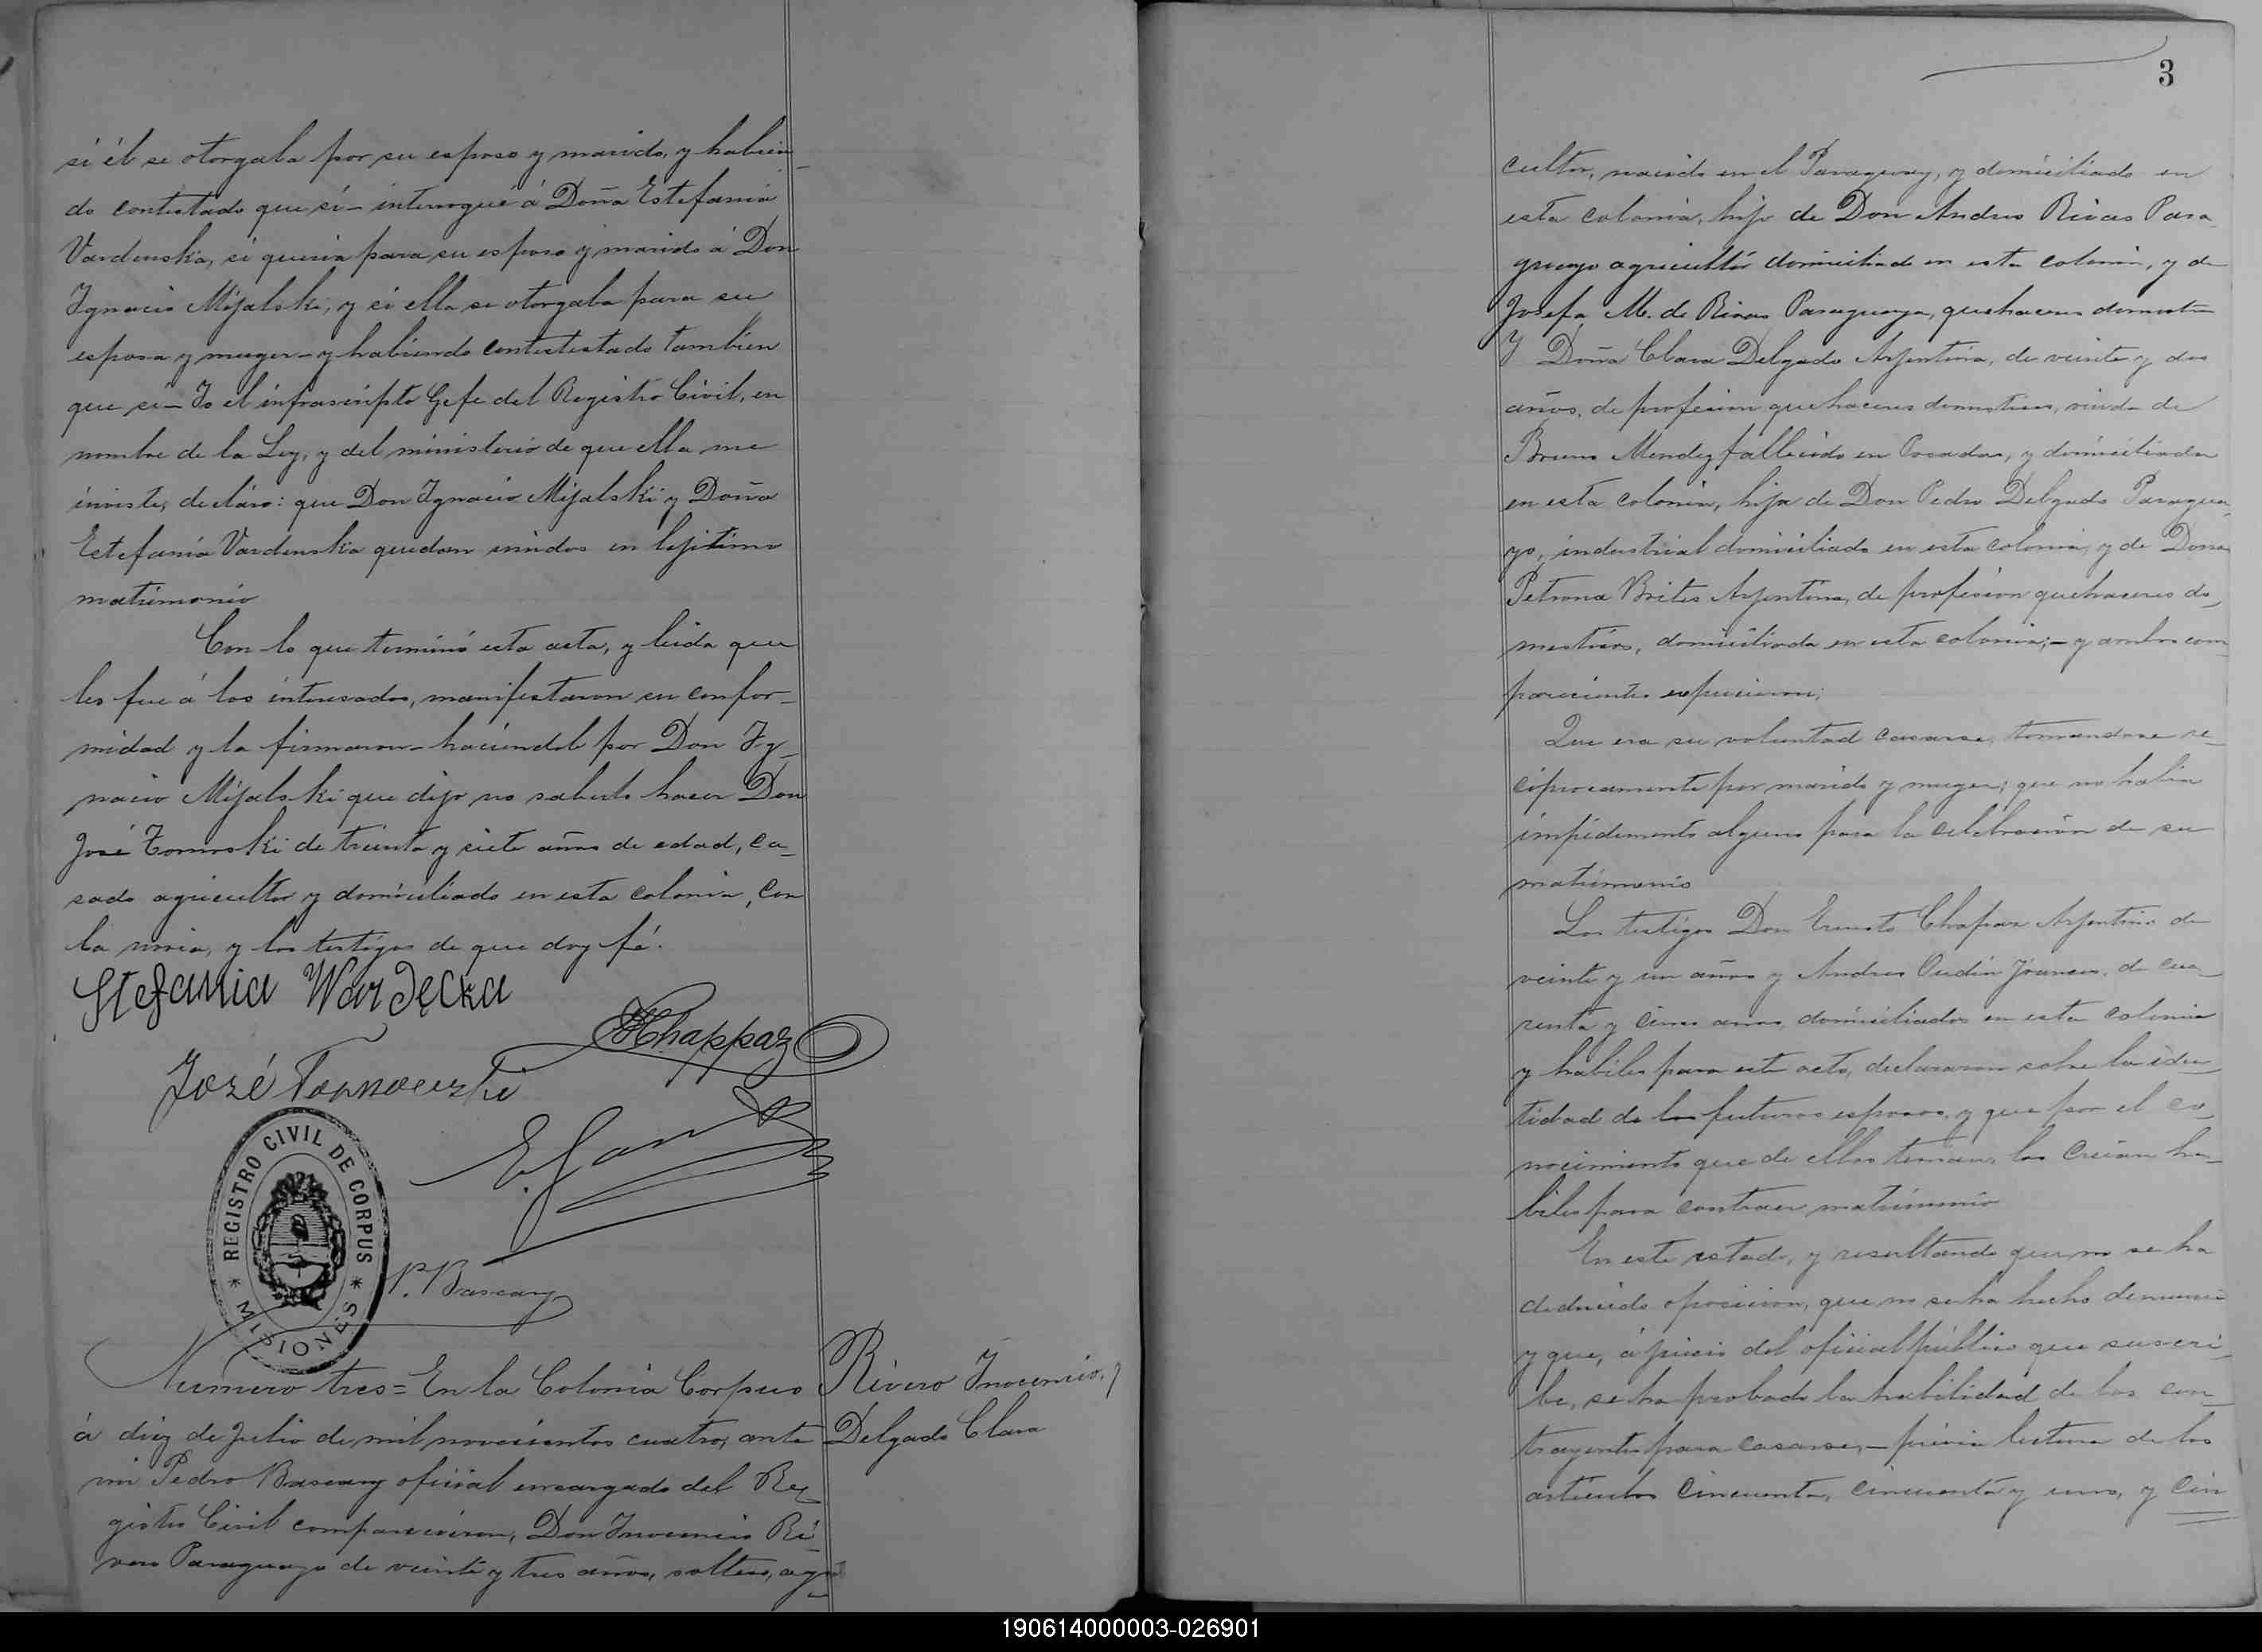 si él se otorgaba por su esposo y marido, y habien
do contestado que sí – interrogué á Doña Estefania
Vardenska, si queria para su esposo y marido á Don
Ygnacio Mijalski, y si ella se otorgaba para su
esposa y muger – y habiendo contestestado tambien
que si – Yo el infrascripto Gefe del Registro Civil, en
nombre de la Ley, y del ministerio de que ella me
inviste, declaro: que Don Ygnacio Mijalski y Doña
Estefania Vardenska quedan unidos en lejitimo
matrimonio
Con lo que terminó esta acta, y leida que
les fue á los interesados, manifestaron su confor_
midad y la firmaron – haciendolo por Don Yg_
nacio Mijalski que dijo no saberlo hacer Don
José de treinta y siete años de edad, ca_
sado agricultor y domiciliado en esta colonia, con
la novia, y los testigos de que doy fé.
Stefania Wardęcka
Chappaz
José Tarnowski
REGISTRO CIVIL DE CORPUS
* MISIONES *
P. Bascary
Número tres = En la Colonia Corpus
á diez de Julio de mil novecientos cuatro, ante
mi Pedro Bascary oficial encargado del Re_
gistro Civil comparecieron, Don Inocencio Ri_
vero Paraguayo de veinte y tres años, soltero, agri_
Rivero Inocencio, y
Delgado Clara
3
cultor, nacido en el Paraguay, y domiciliado en
esta colonia, hijo de Don Andres Rivas Para_
guayo agricultór domiciliado en esta colonia, y de
Josefa M. de Rivas Paraguaya, quehaceres domest
Y Doña Clara Delgado Arjentina, de veinte y dos
años, de profesion quehaceres domesticos, viuda de
Bruno Mendez fallecido en Posadas, y domiciliada
en esta colonia, hija de Don Pedro Delgado Paragua_
yo, industrial domiciliado en esta colonia, y de Doña
Petrona Brites Arjentina, de profesion quehaceres do_
mesticos, domiciliada en esta colonia; – y ambos com_
parecientes expusieron;
Que era su voluntad casarse, tomandose re_
ciprocamente por marido y muger; que no habia
impedimento alguno para la celebracion de su
matrimonio
Los testigos Don Ernesto Chapaz Arjentino de
veinte y un años y Andres Oudin Frances, de cua_
renta y cinco años, domiciliados en esta colonia
y habiles para este acto, declararon sobre la iden_
tidad de los futuros esposos, y que por el co_
nocimiento que de ellos tenian, los creian ha_
biles para contraer matrimonio
En este estado, y resultando que no se ha
deducido oposicion, que no se ha hecho denuncia
y que, á juicio del oficial público que suscri_
be, se ha probado la habilidad de los con_
trayentes para casarse, – previa lectura de los
articulos cincuenta, cincuenta y uno, y cin
190614000003-026901